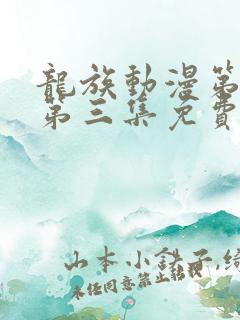 龍族動漫第
第三集免費
山本小鉄子,綠
未任同意禁止轉載